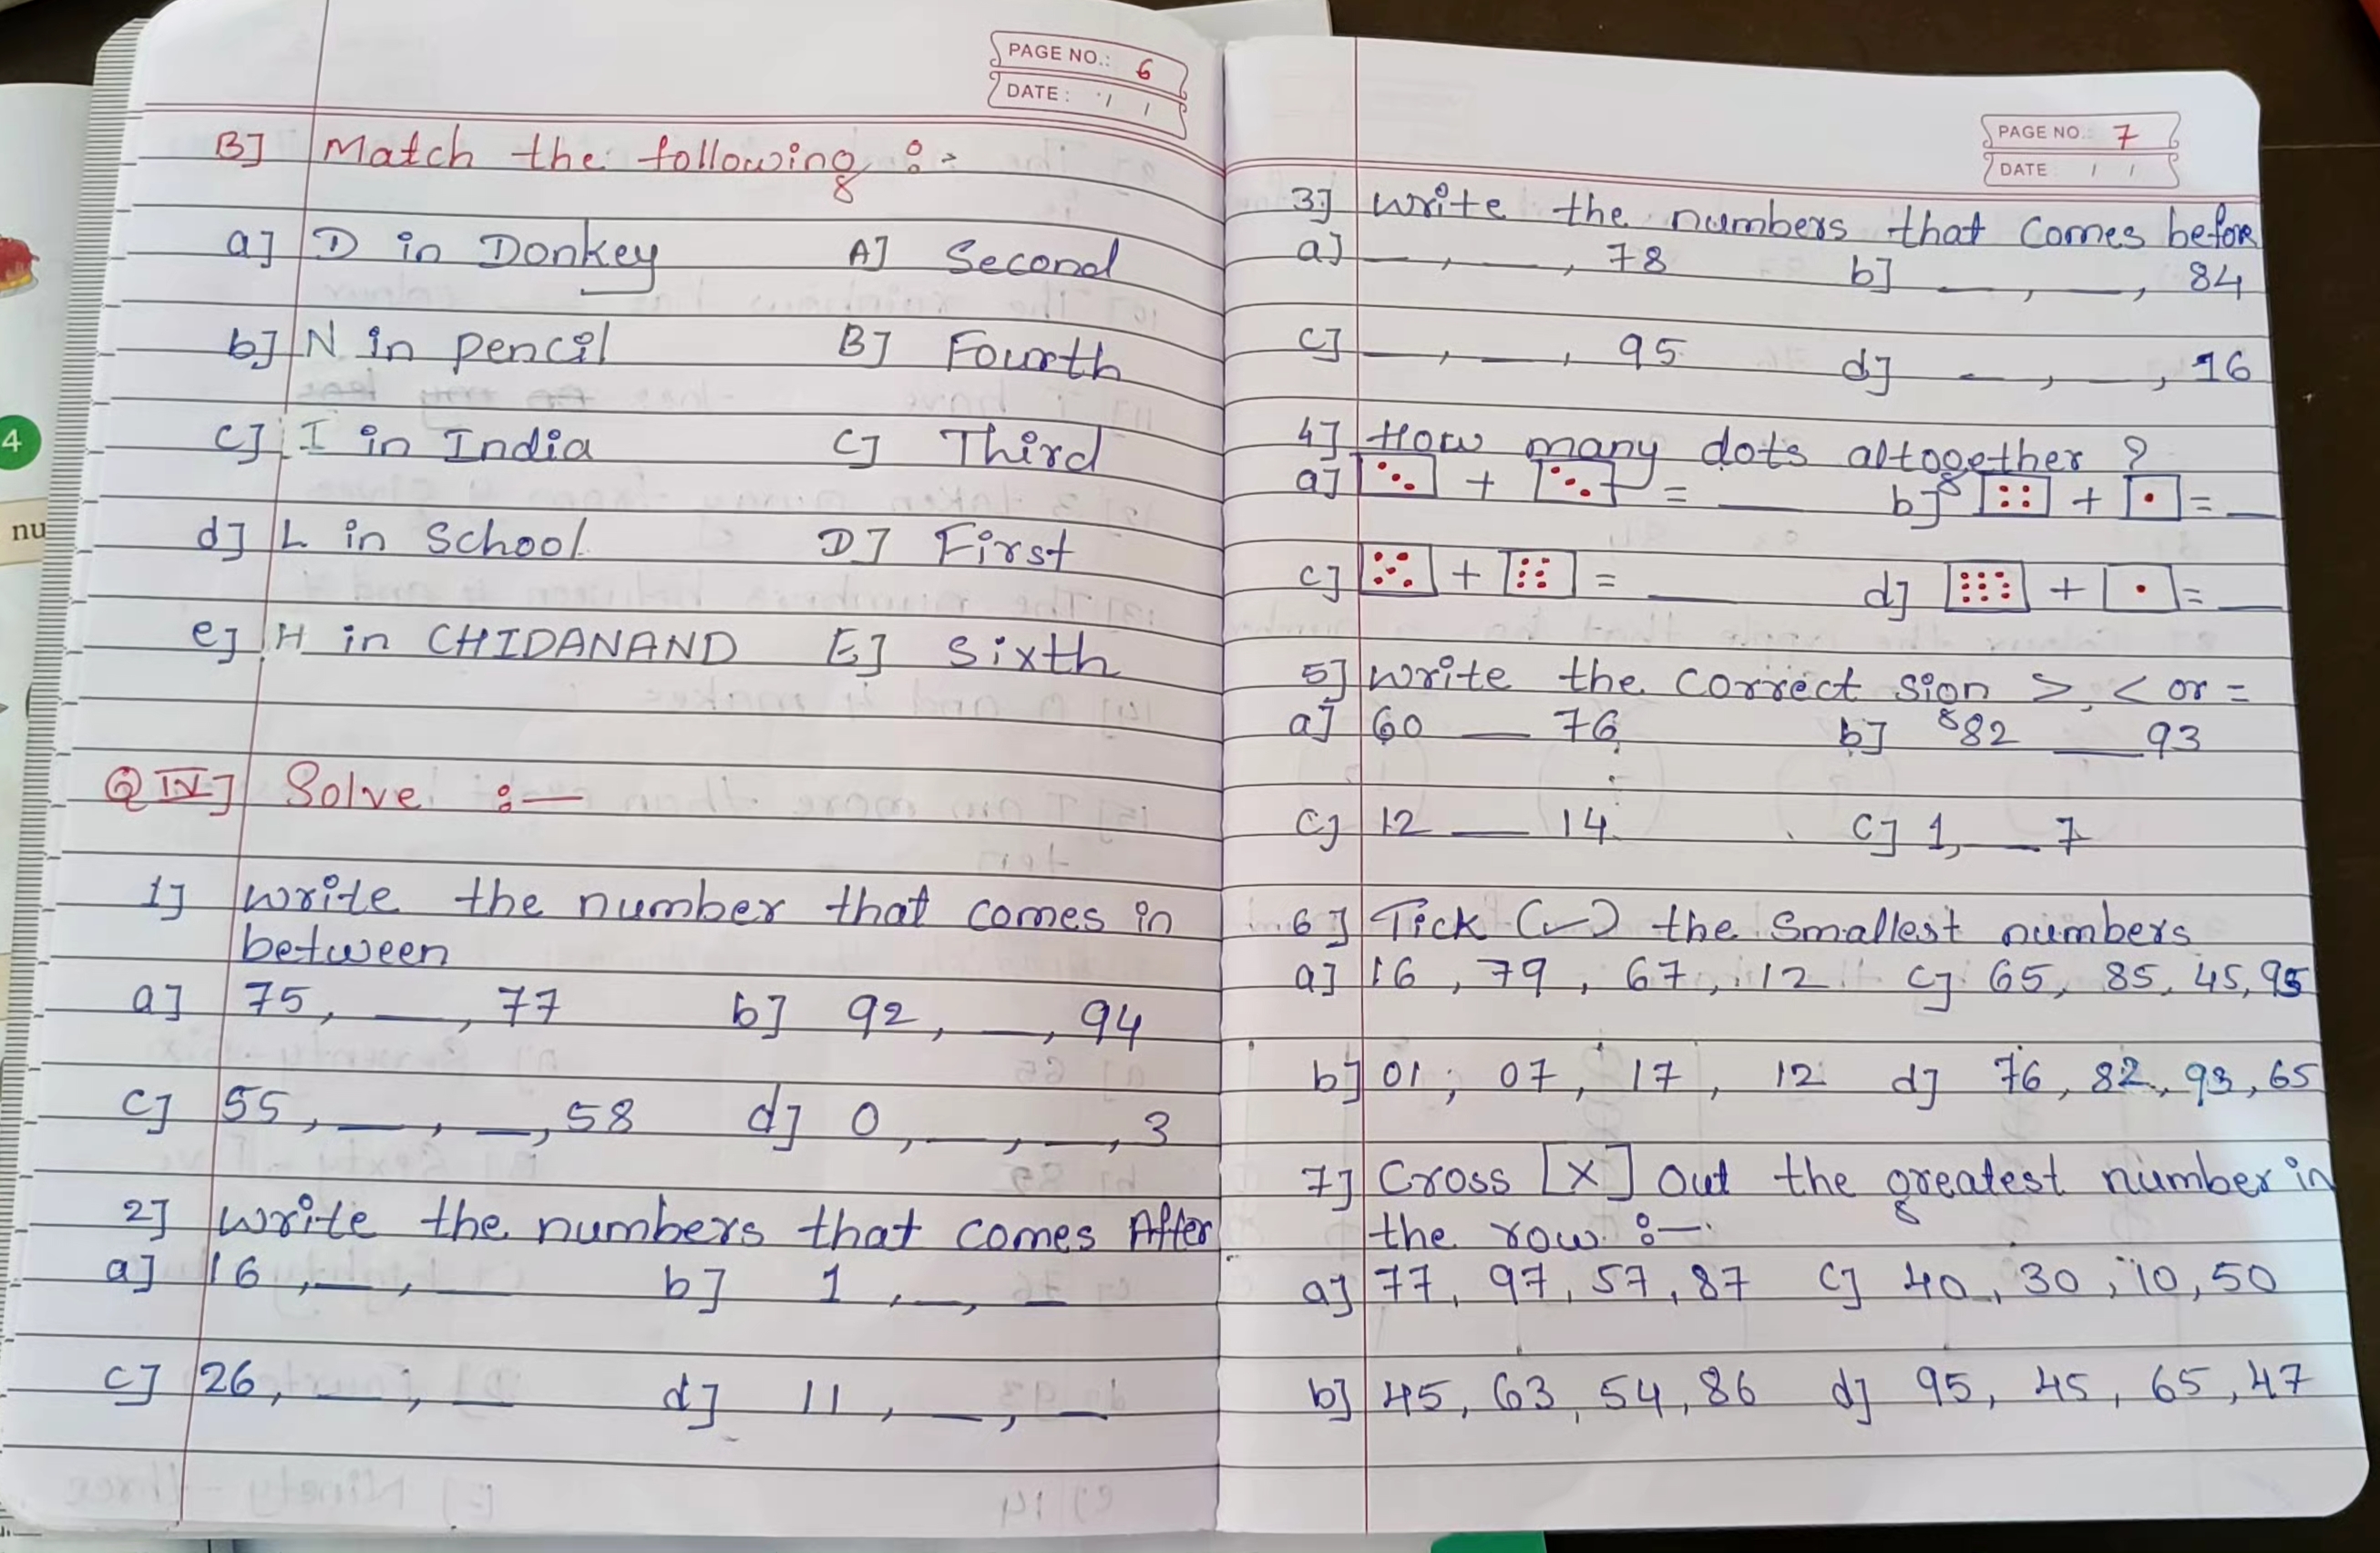 PAGE NO.: 6
DATE: / /
B] Match the following :-
a] D in Donkey A] Second
b] N in pencil B] Fourth
c] I in India C] Third
d] L in School D] First
e] H in CHIDANAND E] Sixth
Q IV] Solve :-
1] Write the number that comes in
between
a] 75, __, 77 b] 92, __, 94
c] 55, __, __, 58 d] 0, __, __, 3
2] Write the numbers that comes After
a] 16, __, __ b] 1, __, __
c] 26, __, __ d] 11, __, __
PAGE NO.: 7
DATE: / /
3] Write the numbers that comes before
a] __, __, 78 b] __, __, 84
c] __, __, 95 d] __, __, 16
4] How many dots altogether ?
a] + = __ b] + = __
c] + = __ d] + = __
5] Write the correct sign >, < or =
a] 60 __ 76 b] 82 __ 93
c] 12 __ 14 c] 1, __ 7
6] Tick (✓) the Smallest numbers
a] 16, 79, 67, 12 c] 65, 85, 45, 95
b] 01, 07, 17, 12 d] 76, 82, 93, 65
7] Cross [X] out the greatest number in
the row :-
a] 77, 97, 57, 87 c] 40, 30, 10, 50
b] 45, 63, 54, 86 d] 95, 45, 65, 47
4
nu